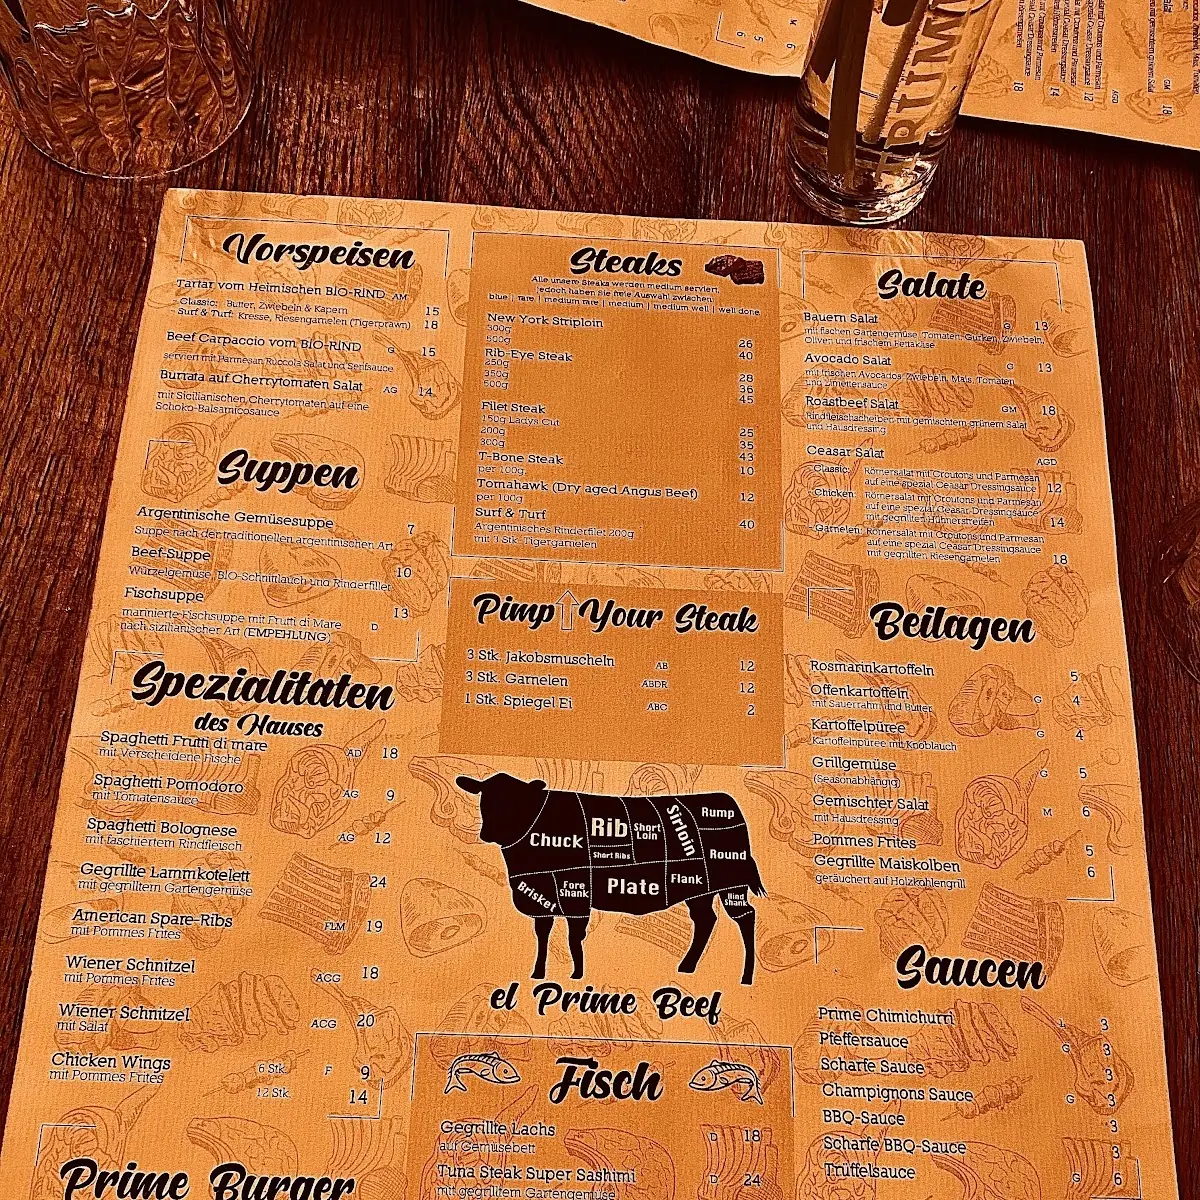 Vorspeisen
Tartar vom Heimischen BIO-RIND AM
Classic: Butter, Zwiebeln & Kapern 15
Surf & Turf: Kresse, Riesengarnelen (Tigerprawn) 18
Beef Carpaccio vom BIO-RIND G 15
serviert mit Parmesan Ruccola Salat und Senfsauce
Burrata auf Cherrytomaten Salat AG 14
mit Sicilianischen Cherrytomaten auf eine
Schoko-Balsamicosauce
Suppen
Argentinische Gemüsesuppe 7
Suppe nach der traditionellen argentinischen Art
Beef-Suppe 10
Würzelgemüse, BIO-Schnittlauch und Rinderfillet
Fischsuppe 13
marinierte Fischsuppe mit Frutti di Mare D
nach sizilianischer Art (EMPEHLUNG)
Spezialitaten
des Hauses
Spaghetti Frutti di mare AD 18
mit Verscheidene Fische
Spaghetti Pomodoro AG 9
mit Tomatensauce
Spaghetti Bolognese AG 12
mit faschiertem Rindfleisch
Gegrillte Lammkotelett 24
mit gegrilltem Gartengemüse
American Spare-Ribs FLM 19
mit Pommes Frites
Wiener Schnitzel ACG 18
mit Pommes Frites
Wiener Schnitzel ACG 20
mit Salat
Chicken Wings 6 Stk. F 9
mit Pommes Frites
12 Stk. 14
Prime Burger
Steaks
Alle unsere Steaks werden medium serviert,
jedoch haben Sie freie Auswahl zwischen:
blue | rare | medium rare | medium | medium well | well done
New York Striploin
300g 26
500g 40
Rib-Eye Steak
250g 28
350g 36
500g 45
Filet Steak
150g Ladys Cut 25
200g 35
300g 43
T-Bone Steak
per 100g, 10
Tomahawk (Dry aged Angus Beef) 12
per 100g
Surf & Turf 40
Argentinisches Rinderfilet 200g
mit 3 Stk. Tigergarnelen
Pimp Your Steak
3 Stk. Jakobsmuscheln AB 12
3 Stk. Garnelen ABDR 12
1 Stk. Spiegel Ei ABC 2
Chuck
Rib
Short
Loin
Sirloin
Rump
Short Ribs
Round
Brisket
Fore
Shank
Plate
Flank
Hind
Shank
el Prime Beef
Fisch
Gegrillte Lachs D 18
auf Gemüsebett
Tuna Steak Super Sashimi D 24
mit gegrilltem Gartengemüse
Salate
Bauern Salat G 13
mit fischen Gartengemüse, Tomaten, Gurken, Zwiebeln,
Oliven und frischem Fettakäse
Avocado Salat G 13
mit frischen Avocados, Zwiebeln, Mais, Tomaten
und Limettensauce
Roastbeef Salat GM 18
Rindfleischscheiben mit gemischtem grünem Salat
und Hausdressing
Ceasar Salat AGD
- Classic: Römersalat mit Croutons und Parmesan
auf eine spezial Ceasar Dressingsauce 12
- Chicken: Römersalat mit Croutons und Parmesan
auf eine spezial Ceasar Dressingsauce
mit gegrillten Hühnerstreifen 14
- Garnelen: Römersalat mit Croutons und Parmesan
auf eine spezial Ceasar Dressingsauce
mit gegrillten Riesengarnelen 18
Beilagen
Rosmarinkartoffeln 5
Offenkartoffeln G 4
mit Sauerrahm und Butter
Kartoffelpüree G 4
Kartoffelnpüree mit Knoblauch
Grillgemüse G 5
(Seasonabhängig)
Gemischter Salat M 6
mit Hausdressing
Pommes Frites 5
Gegrillte Maiskolben 6
geräuchert auf Holzkohlengrill
Saucen
Prime Chimichurri L 3
Pfeffersauce G 3
Scharfe Sauce 3
Champignons Sauce G 3
BBQ-Sauce 3
Scharfe BBQ-Sauce 3
Trüffelsauce G 6